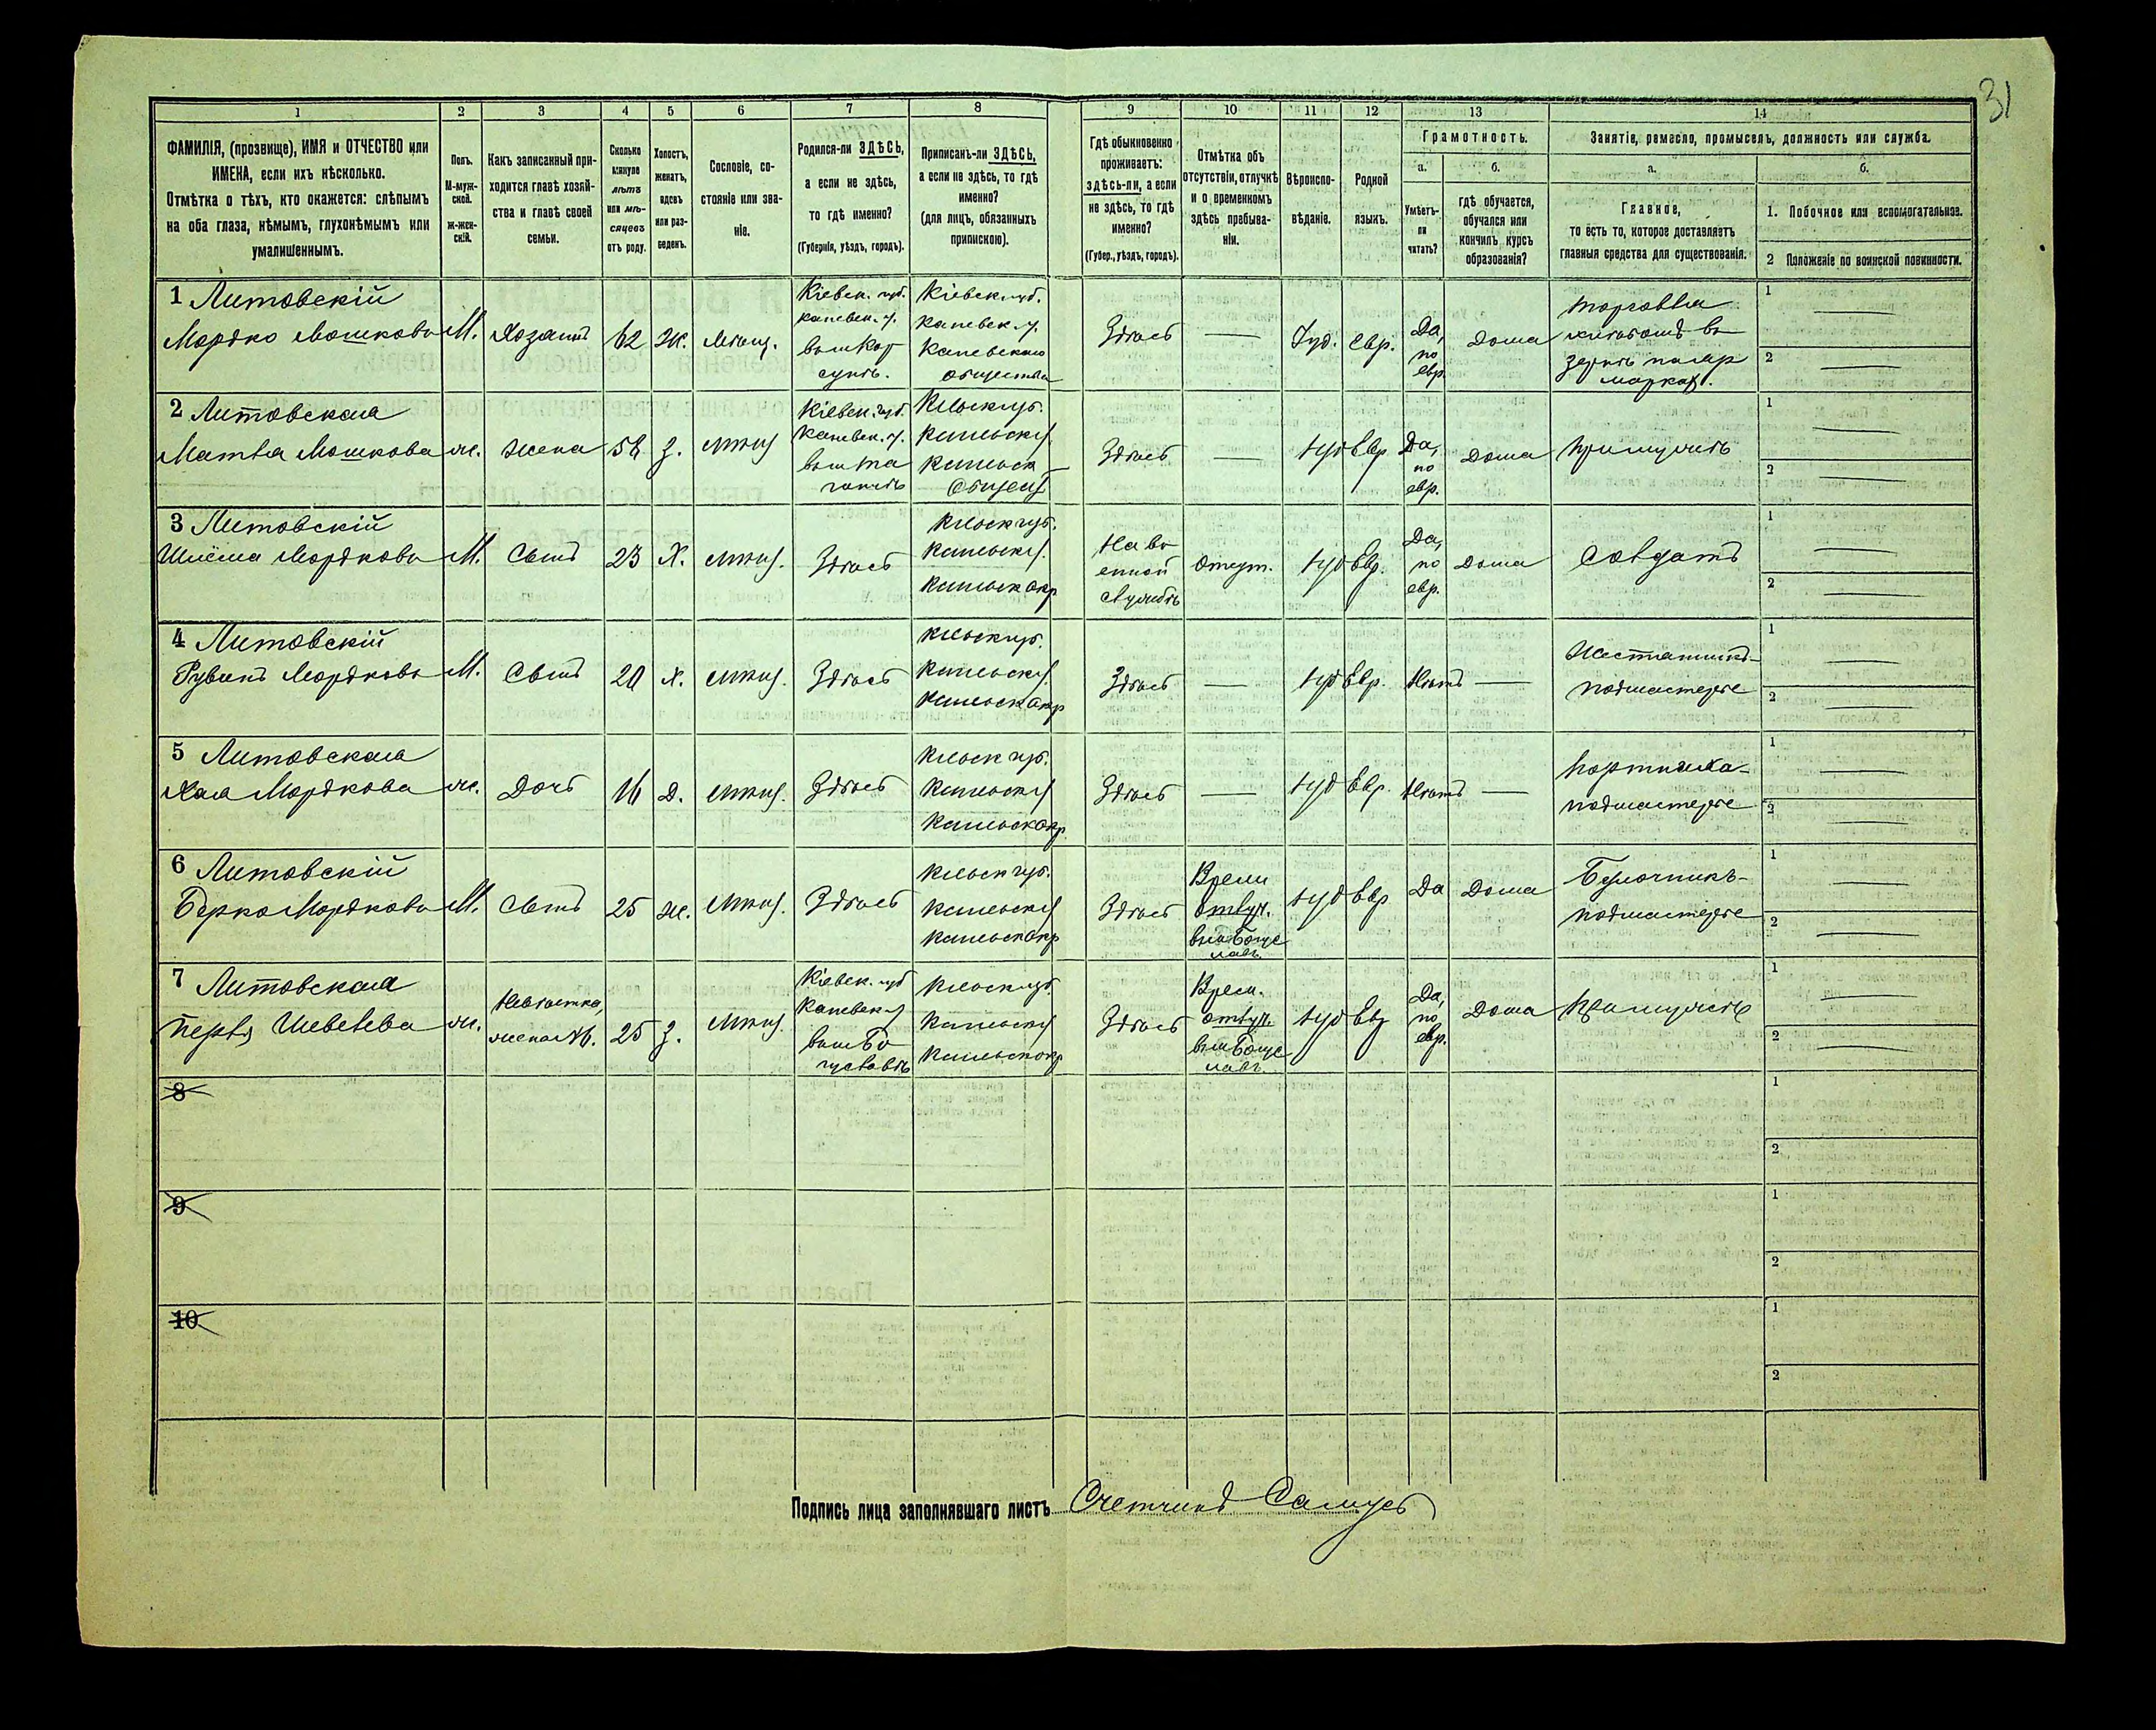 31
1 2 3 4 5 6 7 8 9 10 11 12 13 14
ФАМИЛІЯ, (прозвище), ИМЯ и ОТЧЕСТВО или
ИМЕНА, если ихъ нѣсколько.
Отмѣтка о тѣхъ, кто окажется: слѣпымъ
на оба глаза, нѣмымъ, глухонѣмымъ или
умалишеннымъ.
Полъ.
М-муж-
ской.
Ж-жен-
скій.
Какъ записанный при-
ходится главѣ хозяй-
ства и главѣ своей
семьи.
Сколько
минуло
лѣтъ
или мѣ-
сяцевъ
отъ роду.
Холостъ,
женатъ,
вдовъ
или раз-
веденъ.
Сословіе, со-
стояніе или зва-
ніе.
Родился-ли ЗДѢСЬ,
а если не здѣсь,
то гдѣ именно?
(Губернія, уѣздъ, городъ).
Приписанъ-ли ЗДѢСЬ,
а если не здѣсь, то гдѣ
именно?
(для лицъ, обязанныхъ
припискою).
Гдѣ обыкновенно
проживаетъ:
здѣсь-ли, а если
не здѣсь, то гдѣ
именно?
(Губер., уѣздъ, городъ).
Отмѣтка объ
отсутствіи, отлучкѣ
и о временномъ
здѣсь пребыва-
ніи.
Вѣроиспо-
вѣданіе.
Родной
языкъ.
Грамотность.
а.
Умѣетъ-
ли
читать?
б.
гдѣ обучается,
обучался или
кончилъ курсъ
образованія?
Занятіе, ремесло, промыселъ, должность или служба.
а.
Главное,
то есть то, которое доставляетъ
главныя средства для существованія.
б.
1. Побочное или вспомогательное.
2 Положеніе по воинской повинности.
1 Литовскій
Мордко Мошковъ
М.
Хозяинъ
62
Ж.
Мѣщ.
Кіевск. губ.
Каневск. у.
вам. Кор
сунѣ.
Кіевск. губ.
Каневск. у.
Каневскаго
общества
Здѣсь
—
Іуд.
Евр.
Да,
по
евр.
Дома
Торговля
хлѣбомъ въ
зернѣ на яр
маркахъ.
1 —
2 —
2 Литовская
Матля Мошкова
ж.
Жена
З.
мѣщ.
Кіевск. губ.
Каневск. у.
Кіевск. губ.
Каневск. у.
Каневск
Общест
Здѣсь
—
Іуд
Евр
Да,
по
евр.
Дома
При мужѣ
1 —
2 —
3 Литовскій
Шлёма Мордковъ
М.
Сынъ
23
Х.
мѣщ.
Здѣсь
Кіевск губ.
Каневск у.
На во
енной
службѣ
Отсут.
Іуд
Евр.
Да,
по
евр.
Дома
Солдатъ
1 —
2 —
4 Литовскій
Рувинъ Мордковъ
М.
Сынъ
20
х.
мѣщ.
Здѣсь
Кіевск губ.
Каневск у.
Здѣсь
—
Іуд
Евр.
Нѣтъ
—
Жестяникъ-
подмастерье
1 —
2 —
5 Литовская
Хая Мордкова
ж.
Дочь
16
Д.
мѣщ.
Здѣсь
Кіевск губ.
Каневск у
Здѣсь
—
Іуд
Евр.
Нѣтъ
—
Портниха-
подмастерье
1 —
2 —
6 Литовскій
Берко Мордковъ
М.
Сынъ
25
ж.
мѣщ.
Здѣсь
Кіевск губ.
Каневск у
Здѣсь
Врем
отлуч.
въ м Богус
лавъ
Іуд
Евр
Да
Дома
Булочникъ-
подмастерье
1 —
2 —
7 Литовская
Перля Шевелева
ж.
Невѣстка,
жена №6.
25
З.
мѣщ.
Кіевск. губ
Каневск у
вам. Бо
гуславѣ
Кіевск губ.
Каневск у
Здѣсь
Врем.
отлуч.
въ м Богус
лавъ
Іуд
Евр
Да,
по
евр.
Дома
При мужѣ
1 —
2 —
8
1
2
9
1
2
10
1
2
Подпись лица заполнявшаго листъ Счетчикъ Самусь